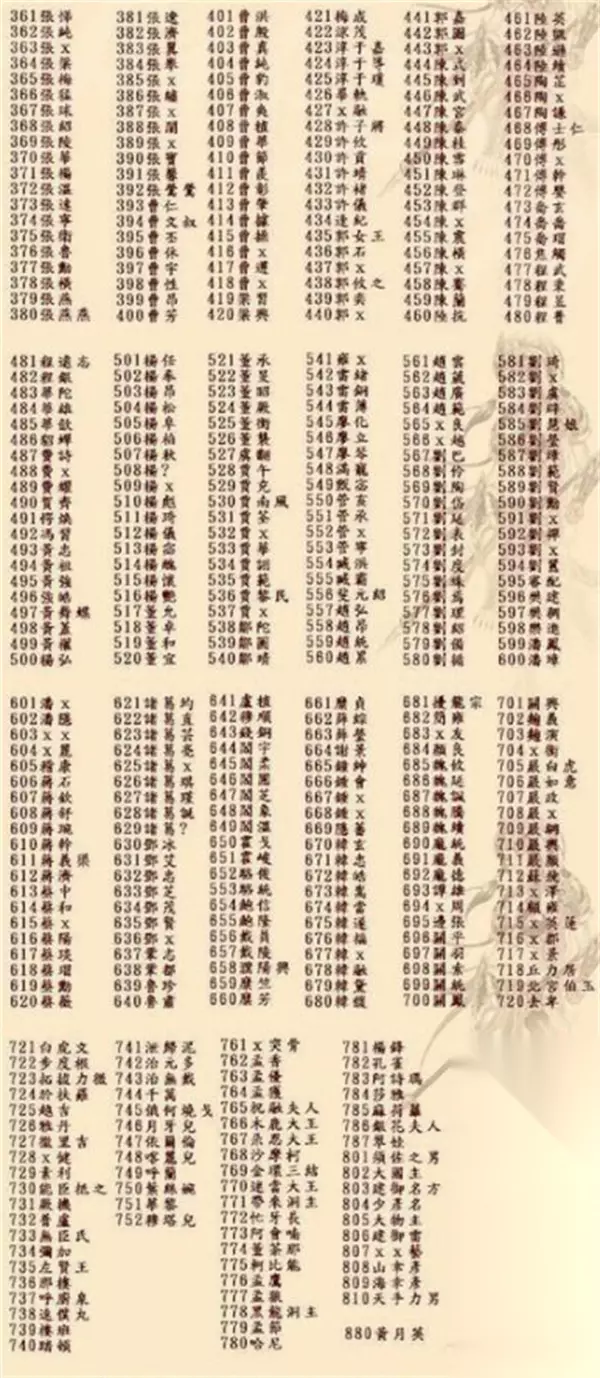 361張悌 381張達 401曹洪 421梅成 441郭嘉 461陸英
362張純 382張濟 402曹殷 422涼茂 442郭圖 462陸
363張x 383張翼 403曹真 423淳于嘉 443郭x 463陸
364張梁 384張 404曹純 424淳于導 444陳式 464陸績
365張梅 385張x 405曹豹 425淳于瓊 445陳到 465陶芷
366張猛 386張繡 406曹淑 426畢軌 446陳武 466陶x
367張球 387張x 407曹爽 427x融 447陳宮 467陶謙
368張紹 388張闓 408曹植 428許子將 448陳泰 468傅士仁
369張陵 389張 409曹華 429許攸 449陳桂 469傅彤
370張華 390張寶 410曹節 430許貢 450陳雪 470傅x
371張楊 391張馨 411曹髦 431許靖 451陳琳 471傅幹
372張溫 392張鶯鶯 412曹彰 432許褚 452陳登 472傅嬰
373張遠 393曹仁 413曹肇 433許儀 453陳群 473喬玄
374張寧 394曹文叔 414曹據 434逢紀 454陳x 474喬
375張衛 395曹丕 415曹操 435郭女王 455陳震 475喬瑁
376張魯 396曹休 416曹x 436郭石 456陳橫 476焦觸
377張勳 397曹宇 417曹遵 437郭x 457陳x 477程武
378張橫 398曹性 418曹x 438郭攸之 458陳騫 478程秉
379張燕 399曹昂 419梁習 439郭奕 459陳蘭 479程昱
380張燕燕 400曹芳 420梁興 440郭x 460陸抗 480程普
481程遠志 501楊任 521董承 541雍x 561趙雲 581劉琦
482程銀 502楊奉 522董旻 542雷緒 562趙葳 582劉x
483華陀 503楊昂 523董昭 543雷銅 563趙廣 583劉虞
484華雄 504楊松 524董厥 544雷薄 564趙範 584劉
485華歆 505楊阜 525董衡 545廖化 565x良 585劉慧娘
486貂蟬 506楊柏 526董襲 546廖立 566x越 586劉瑩
487費詩 507楊秋 527虞翻 547廖琴 567劉巴 587劉璋
488費x 508楊? 528賈午 548滿寵 568劉伶 588劉範
489費耀 509楊x 529賈充 549甄宓 569劉陶 589劉賢
490賀齊 510楊彪 530賈南風 550管亥 570劉岱 590劉勳
491愕煥 511楊琦 531賈荃 551管承 571劉延 591劉x
492馮習 512楊儀 532賈x 552管x 572劉表 592劉禪
493黃忠 513楊宓 533賈華 553管寧 573劉封 593劉x
494黃祖 514楊醜 534賈詡 554臧洪 574劉度 594劉
495黃強 515楊懷 535賈範 555臧霸 575劉 595審配
496張皓 516楊艷 536賈黎民 556斐元紹 576劉焉 596樊建
497黃舞蝶 517董允 537賈x 557趙弘 577劉理 597樊
498黃蓋 518董卓 538鄒陀 558趙昂 578劉紹 598樊進
499黃權 519董和 539鄒 559趙統 579劉備 599潘鳳
500楊弘 520董宜 540鄒靖 560趙累 580劉循 600潘璋
601潘x 621諸葛均 641盧植 661糜貞 681優龍宗 701關興
602潘隱 622諸葛直 642穆順 662薛綜 682簡雍 702麴義
603xx 623諸葛芸 643錢銅 663薛瑩 683x友 703麴演
604x麗 624諸葛亮 644閻宇 664謝景 684顏良 704x衡
605稽康 625諸葛x 645閻柔 665鍾紳 685魏攸 705嚴白虎
606蔣石 626諸葛琪 646閻圃 666鍾會 686魏延 706嚴如意
607蔣欽 627諸葛瑾 647閻芝 667鍾x 687魏諷 707嚴政
608蔣舒 628諸葛誕 648閻象 668鍾x 688魏騰 708嚴x
609蔣琬 629諸葛? 649閻溫 669隱蕃 689魏續 709嚴綱
610蔣幹 630鄧冰 650霍弋 670韓玄 690龐統 710嚴興
611蔣義渠 631鄧艾 651霍峻 671韓忠 691龐羲 711嚴顏
612蔣濟 632鄧忠 652駱俊 672韓皓 692龐德 712蘇
613蔡中 633鄧芝 653駱統 673韓嵩 693譚雄 713x澤
614蔡和 634鄧茂 654鮑信 674韓當 694x周 714顧雍
615蔡x 635鄧賢 655鮑隆 675韓遂 695邊張 715x英蓮
616蔡陽 636鄧x 656戴員 676韓福 696關平 716x郡
617蔡琰 637鞏志 657戴陵 677韓x 697關羽 717x景
618蔡瑁 638鞏都 658濮陽興 678韓融 698關索 718丘力居
619蔡勳 639魯珍 659糜竺 679韓暹 699關統 719北宮伯玉
620蔡薇 640魯肅 660糜芳 680韓馥 700關鳳 720去卑
721白虎文 741泄歸泥 761x突骨 781楊鋒
722步度根 742治元多 762孟香 782孔雀
723拓拔力微 743治無戴 763孟優 783阿詩瑪
724於扶羅 744千萬 764孟獲 784莎雅
725越吉 745俄何燒戈 765祝融夫人 785麻荷蘿
726雅丹 746月牙兒 766木鹿大王 786銀花夫人
727徹里吉 747依爾倫 767朵思大王 787翠娃
728x健 748喀麗兒 768沙摩柯 801須佐之男
729素利 749呼蘭 769金環三結 802大國主
730能臣抵之 750葉絲婉 770速當大王 803建御名方
731厥機 751華黎 771帶來洞主 804少彥名
732普盧 752穆塔兒 772忙牙長 805大物主
733無臣氏 773阿會喃 806建御雷
734彌加 774董荼那 807xx藝
735左賢王 775軻比能 808山幸彥
736那樓 776孟鷹 809海幸彥
737呼廚泉 777孟獵 810天手力男
738速僕丸 778黑龍洞主
739樓班 779孟節 880黃月英
740蹋頓 780哈尼